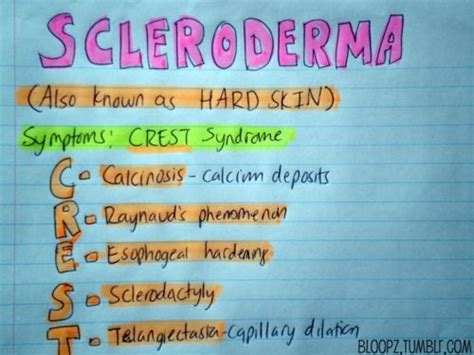 SCLERODERMA
(Also known as HARD SKIN)
Symptoms: CREST Syndrome
C - Calcinosis - calcium deposits
R - Raynaud's phenomenon
E - Esophogeal hardening
S - Sclerodactyly
T - Telangiectasia - capillary dilation
BLOOPZ.TUMBLR.COM